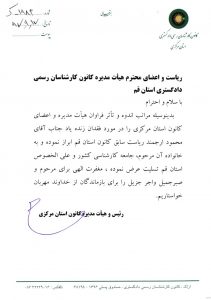 کانون کارشناسان رسمی دادگستری
استان مرکزی
تاریخ
ریاست و اعضای محترم هیأت مدیره کانون کارشناسان رسمی
دادگستری استان قم
با سلام و احترام
بدینوسیله مراتب اندوه و تأثر فراوان هیأت مدیره و اعضای
کانون استان مرکزی را در مورد فقدان زنده یاد جناب آقای
محمود ارجمند ریاست سابق کانون استان قم ابراز نموده و به
خانواده آن مرحوم، جامعه کارشناسی کشور و علی الخصوص
استان قم تسلیت عرض نموده ، مغفرت الهی برای مرحوم و
صبرجمیل واجر جزیل را برای بازماندگان از خداوند مهربان
خواستاریم.
رئیس و هیأت مدیره کانون استان مرکزی
اراک - کانون کارشناسان رسمی دادگستری - صندوق پستی